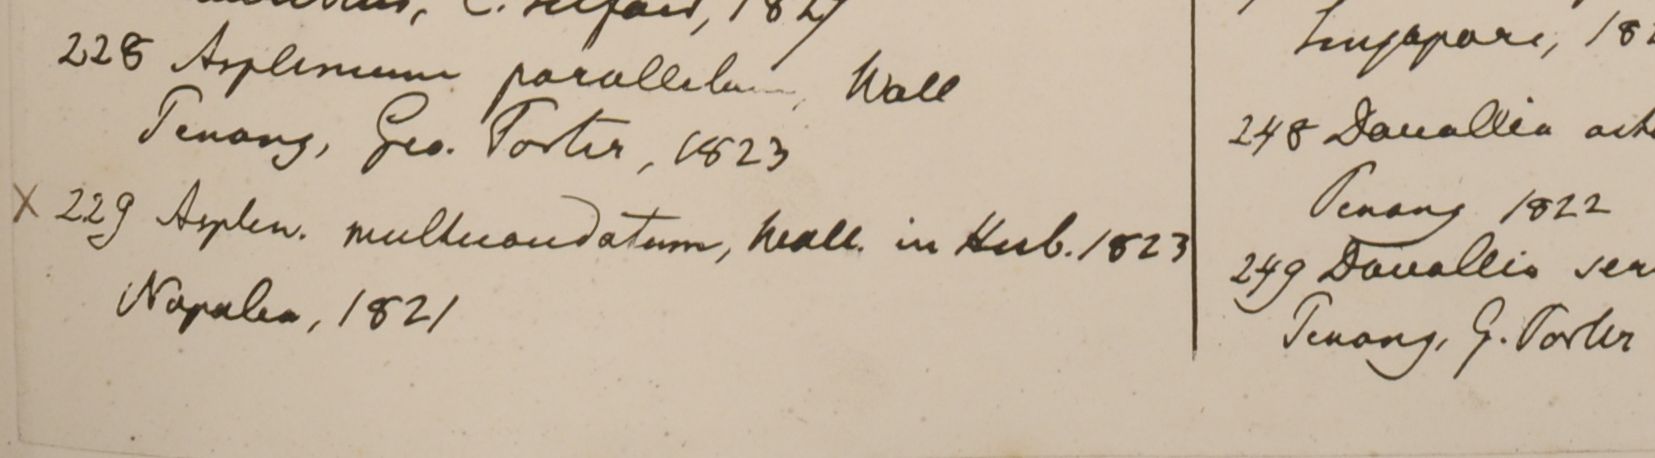 C. Telfair, 1827
228 Asplenium parallelum, Wall
Penang, Geo. Porter, 1823
X 229 Asplen. multicaudatum, Wall. in Herb. 1823
Napalea, 1821
Singapore, 182
248 Davallia
Penang 1822
249 Davallia ser
Penang, G. Porter